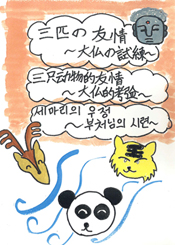 三匹の友情
～大仏の試練～
三只动物的友情
～大仏的考验～
세마리의 우정
～부처님의 시련～
王